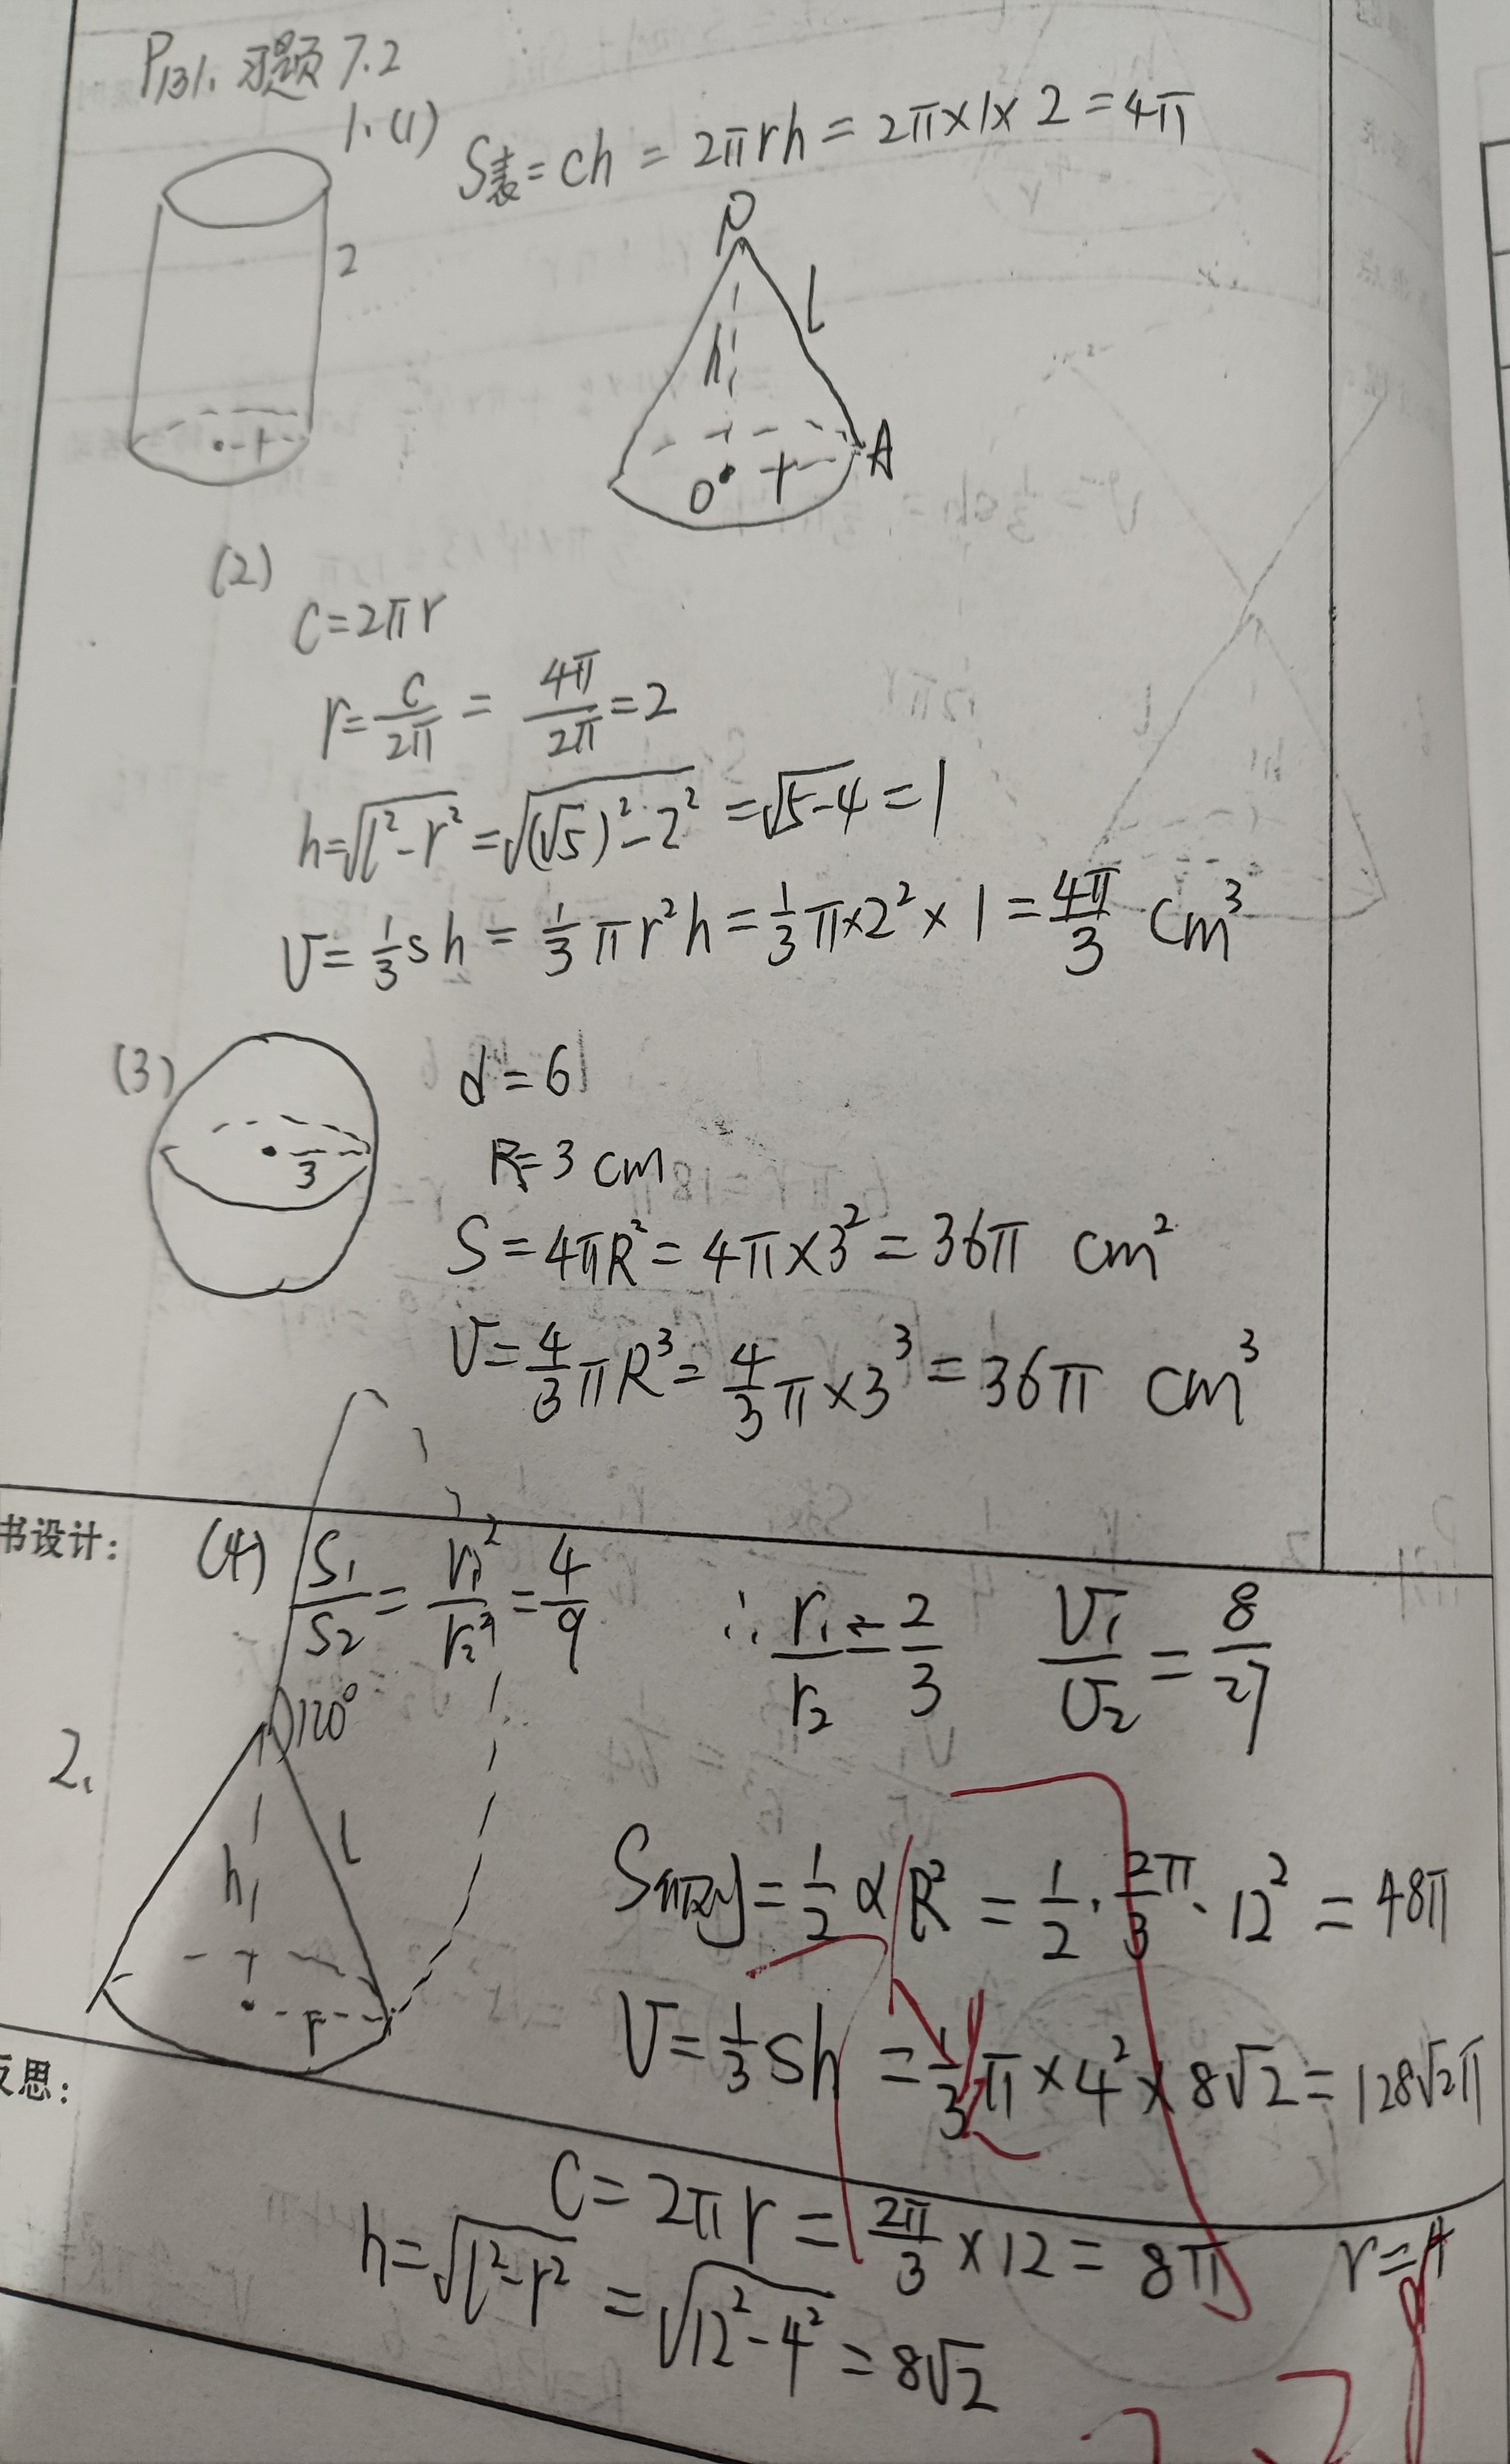 P131. 习题 7.2
1.(1) S表=ch = 2πrh = 2π×1×2=4π
2
1
P
l
h
O r A
(2)
C=2πr
r=c/2π = 4π/2π=2
h=√(l²-r²) =√((√5)²-2²) =√(5-4) =1
V=1/3sh = 1/3πr²h=1/3π×2²×1=4π/3 cm³
(3) d=6
3
R=3 cm
S=4πR²=4π×3²=36π cm²
V=4/3πR³=4/3π×3³=36π cm³
书设计:
(4) S₁/S₂=r₁²/r₂²=4/9 ∴ r₁/r₂=2/3 V₁/V₂=8/27
120°
2.
l
h
r
=1/2αR² = 1/2·2π/3·12² = 48π
V=1/3sh =1/3π×4²×8√2=128√2π
反思:
C=2πr=2π/3×12=8π r=4
h=√(l²-r²) =√(12²-4²) =8√2